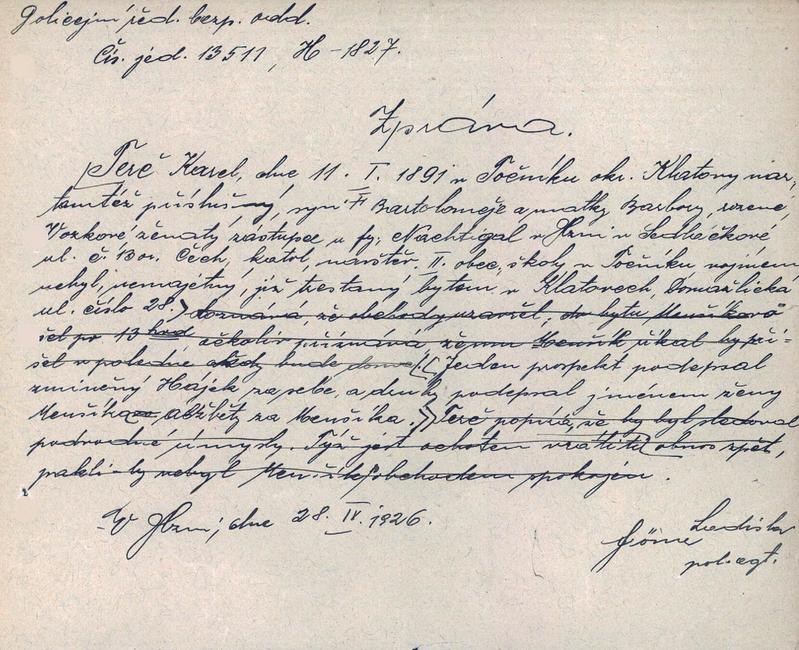 Policejní řed. bezp. odd.
Čís. jed. 13511, H-1827.
Zpráva.
Terč Karel, dne 11. I. 1891 v Točníku okr. Klatovy nar.,
tamtéž příslušný, syn Bartoloměje a matky Barbory, rozené,
Vozkové, ženatý, zástupce u fy. Nachtigal v Plzni v Sedláčkově
ul. č. 13 or. Čech, katol., navštěv. II. obec. školy v Točníku vojínem
nebyl, nemajetný, již trestaný bytem v Klatovech, Domažlická
ul. číslo 28. doznává, že obchody uzavřel, do bytu Menšíkově
šel po 13 hod ačkoliv přiznává že mu Menšík říkal by při-
šel v poledne a kdy bude doma. Jeden prospekt podepsal
zmíněný Hájek za sebe, a druhý podepsal jmenem ženy
Menšíka Alžběty za Menšíka. Terč popírá, že by byl sledoval
podvodné úmysly. Týž jest ochoten vrátiti obnos zpět,
pakli-by nebyl Menšík s obchodem spokojen.
V Plzni, dne 28. IV. 1926.
Ladislav
pol. agt.